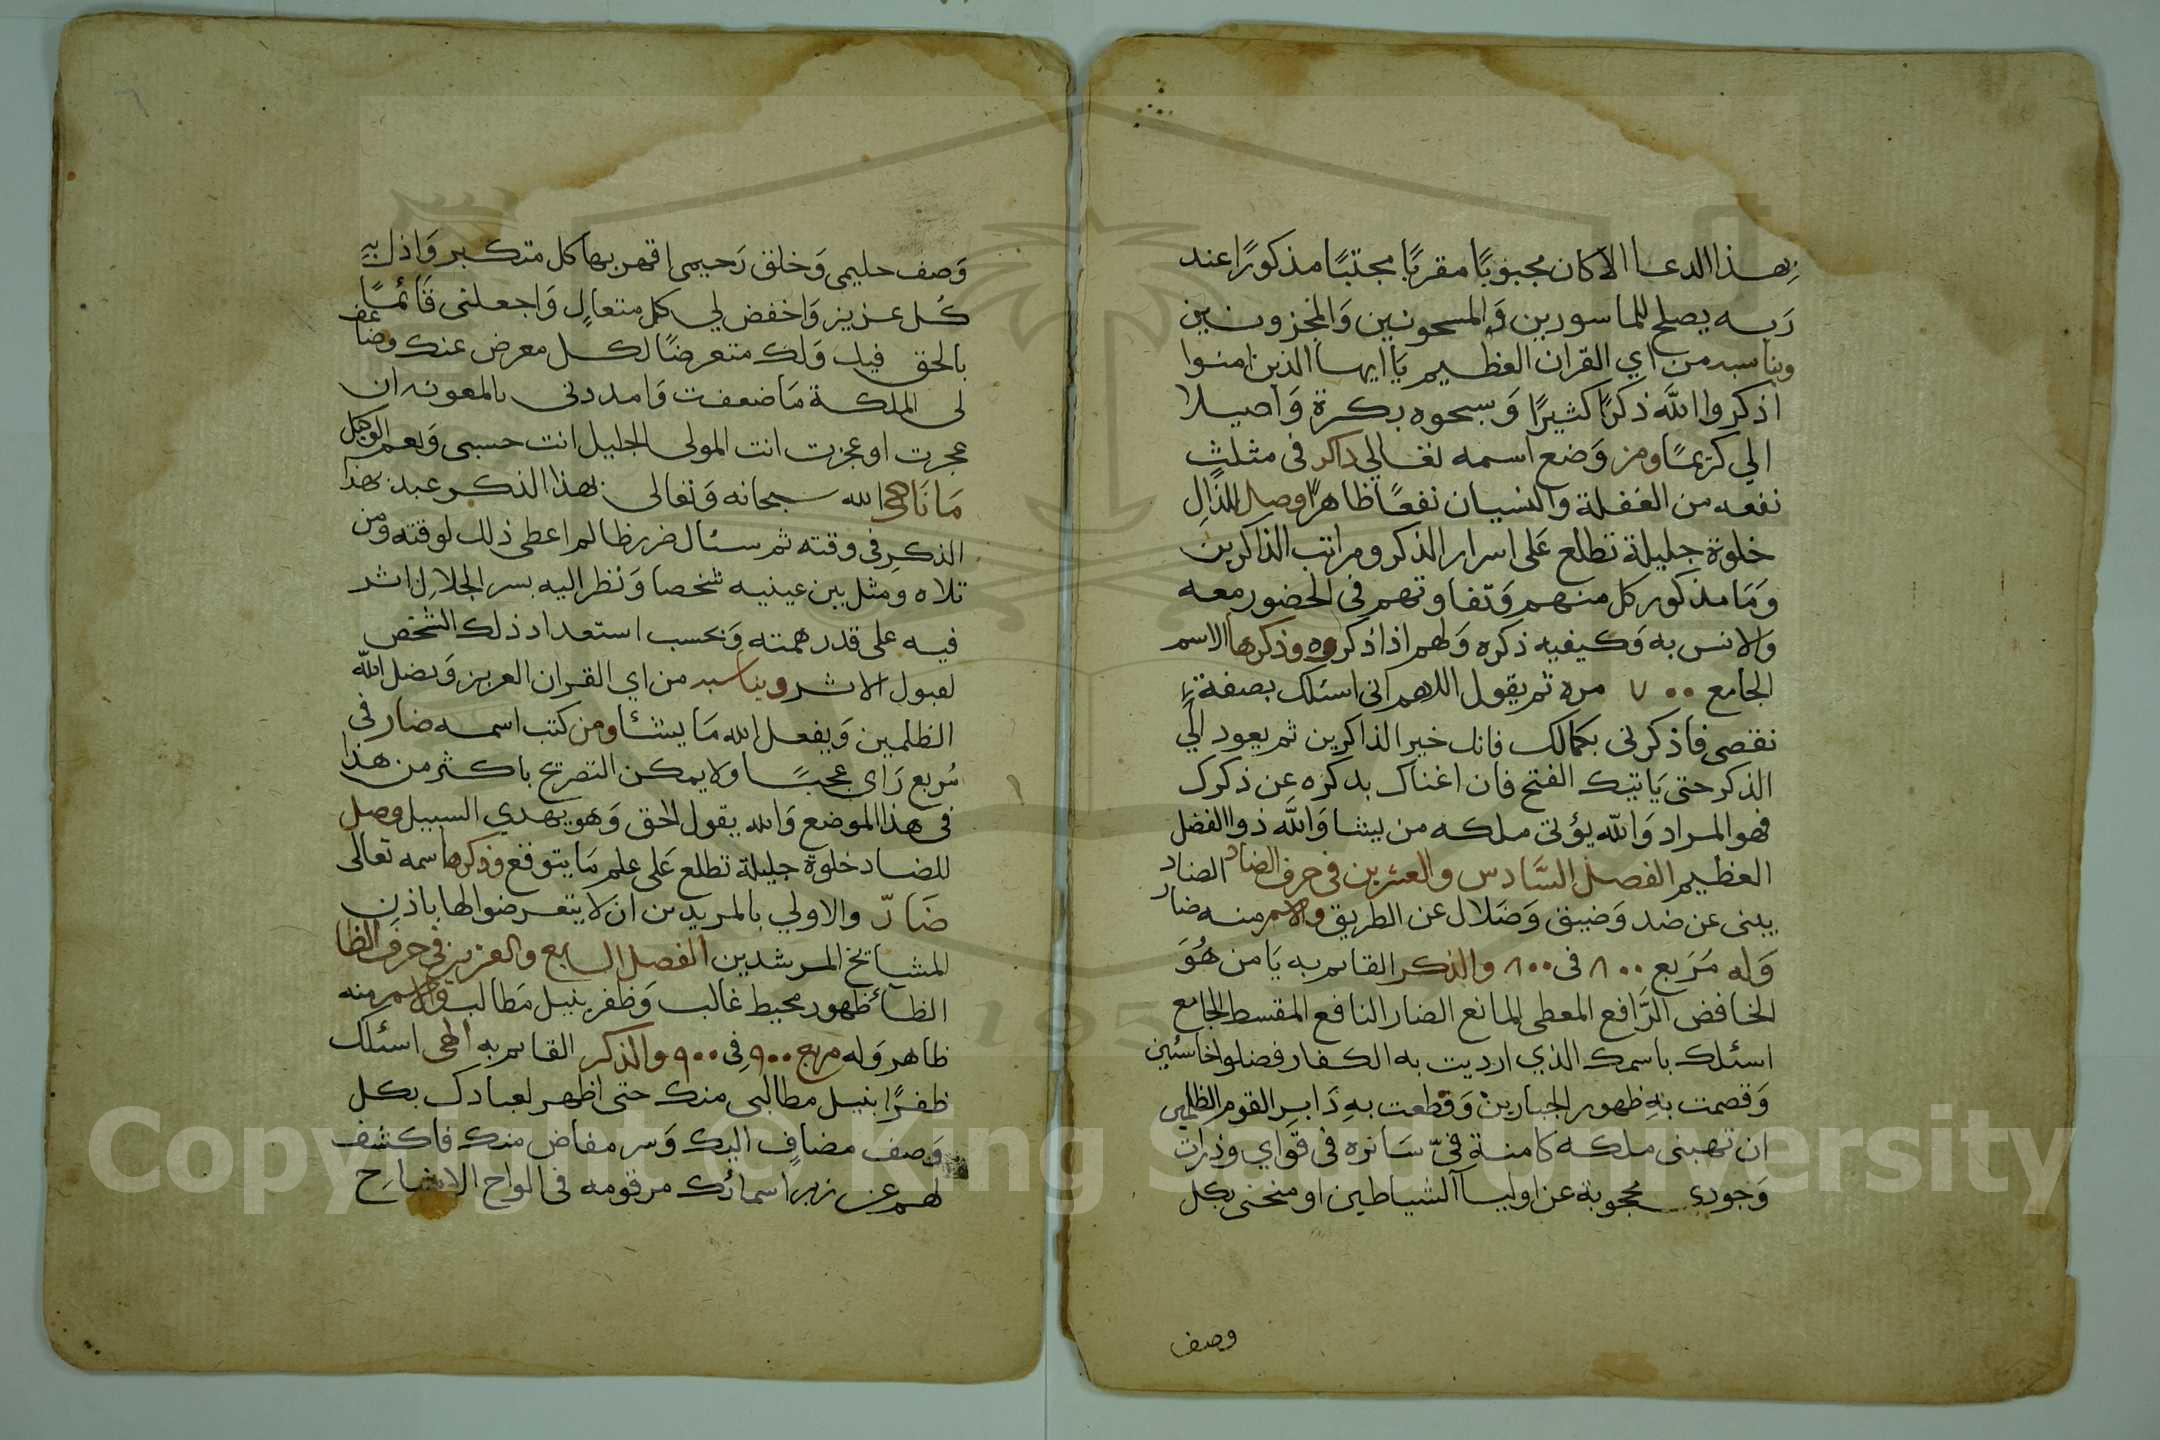 بهذا الدعا الا كان محبوبًا مقربًا مجتبًا مذكورًا عند
ربه يصلح للماسورين وَالمسجونين وَالمخزونين
ويناسبه من اي القران العظيم يَا ايها الذين امنوا
اذكروا الله ذكرًا كثيرًا وَسبحوه بكرة وَاصيلا
الي كريمًا ومن وَضع اسمه تعالي ذاكر فى مثلث
نفعه من الغفلة والنسيان نفعًا ظاهرًا وصل للذالِ
خلوة جليلة تطلع عَلى اسرار الذكر ومراتب الذاكرين
وَمَا مذكور كل منهم وَتفاوتهم في الحضور معه
وَالانس به وَكيفيه ذكره وَلهم اذا ذكروه وذكرها الاسم
الجامع ٧٠٠ مره ثم يقول اللهم انى اسئلك بصفة
نقصى فاذكرنى بكمالك فانك خير الذاكرين ثم يعود الي
الذكر حتى يَاتيك الفتح فان اغناك بذكره عن ذكرك
فهو المراد وَالله يؤتى ملكه من يشا وَالله ذوا الفضل
العظيم الفصل السَّادس والعشرين فى حرف الضاد الضاد
يبنى عن ضد وَضيق وَضلال عن الطريق والاسم منه ضار
وَله مَرَبع ٨٠٠ فى ٨٠٠ والذكر القايم به يَا من هُوَ
الخافض الرَّافع المعطى المانع الضار النافع المقسط الجامع
اسئلك باسمك الذي ارديت به الكفار فضلوا خاسئين
وَقصمت بهِ ظهور الجبارين وَقطعت بهِ دَابر القوم الظلمين
ان تهبنى ملكه كامنة فىّ سَانره فى قواي وذرات
وَجودي محجوبة عن اوليآ الشياطين او منخنى بكل
وصف
وَصف حليمى وَخلق رَحيمى اقهر بها كل متكبر وَاذل بهِ
كُل عزيز وَاخفض لي كل متعالٍ وَاجعلنى قَائمًا
بالحق فيك وَلك متعرضًا لكل معرض عنك وضاعف
لى الملكة مَا ضعفت وَامددنى بالمعونه ان
عجرت او عجزت انت المولى الجليل انت حسبى وَنعم الوكيل
مَا نَاجى الله سبحانه وَتعالى بهذا الذكر عبد بهذا
الذكر فى وقته ثم سئال ضر ظالم اعطى ذلك لوقته ومن
تلاه ومثل بين عينيه شخصا وَنظر اليه بسر الجلال اثر
فيه على قدر همته وَبحسب استعداد ذلك الشخص
لقبول الاثر ويناسبه من اي القران العزيز وَيضل الله
الظلمين وَيفعل الله مَا يشئا ومن كتب اسمه ضار فى
مُربع رَاى عجبًا ولا يمكن التصريح باكثر من هذا
فى هذا الموضع وَالله يقول الحق وَهو يهدي السبيل وصل
للضاد خلوة جليلة تطلع عَلى علم مَا يتوقع وذكرها اسمه تعالى
ضَارّ والاولي بالمريدين ان لا يتعرضوا لها باذن
المشايخ المرشدين الفصل السابع والعزيز في حرف الظا
الظائ ظهور محيط غالب وَظفر بنيل مَطالب والاسم منه
ظاهر وَله مربع ٩٠٠ فى ٩٠٠ والذكر القايم به الهى اسئلك
ظفرًا بنيل مطالبى منك حتى اظهر لعبادك بكل
وَصف مضافٍ اليك وَسر مفاض منك فاكشف
لهم عن زبر اسمائك مرقومه فى الواح الاشباح